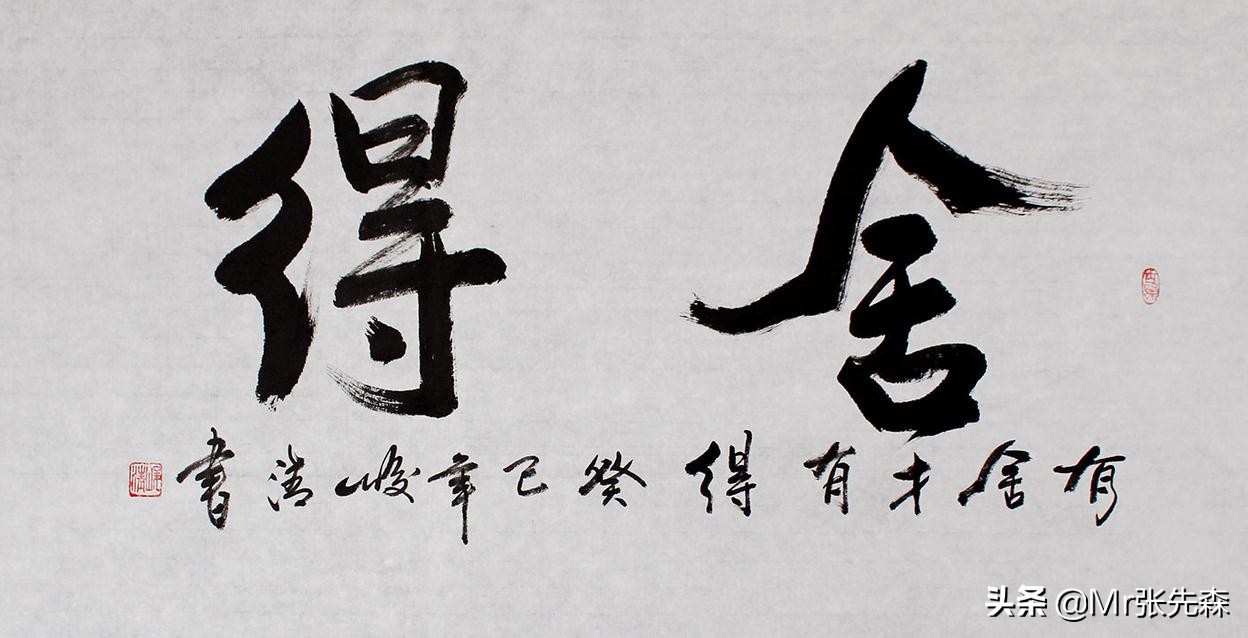 舍得
有舍才有得 癸巳年峻清書
头条 @Mr张先森